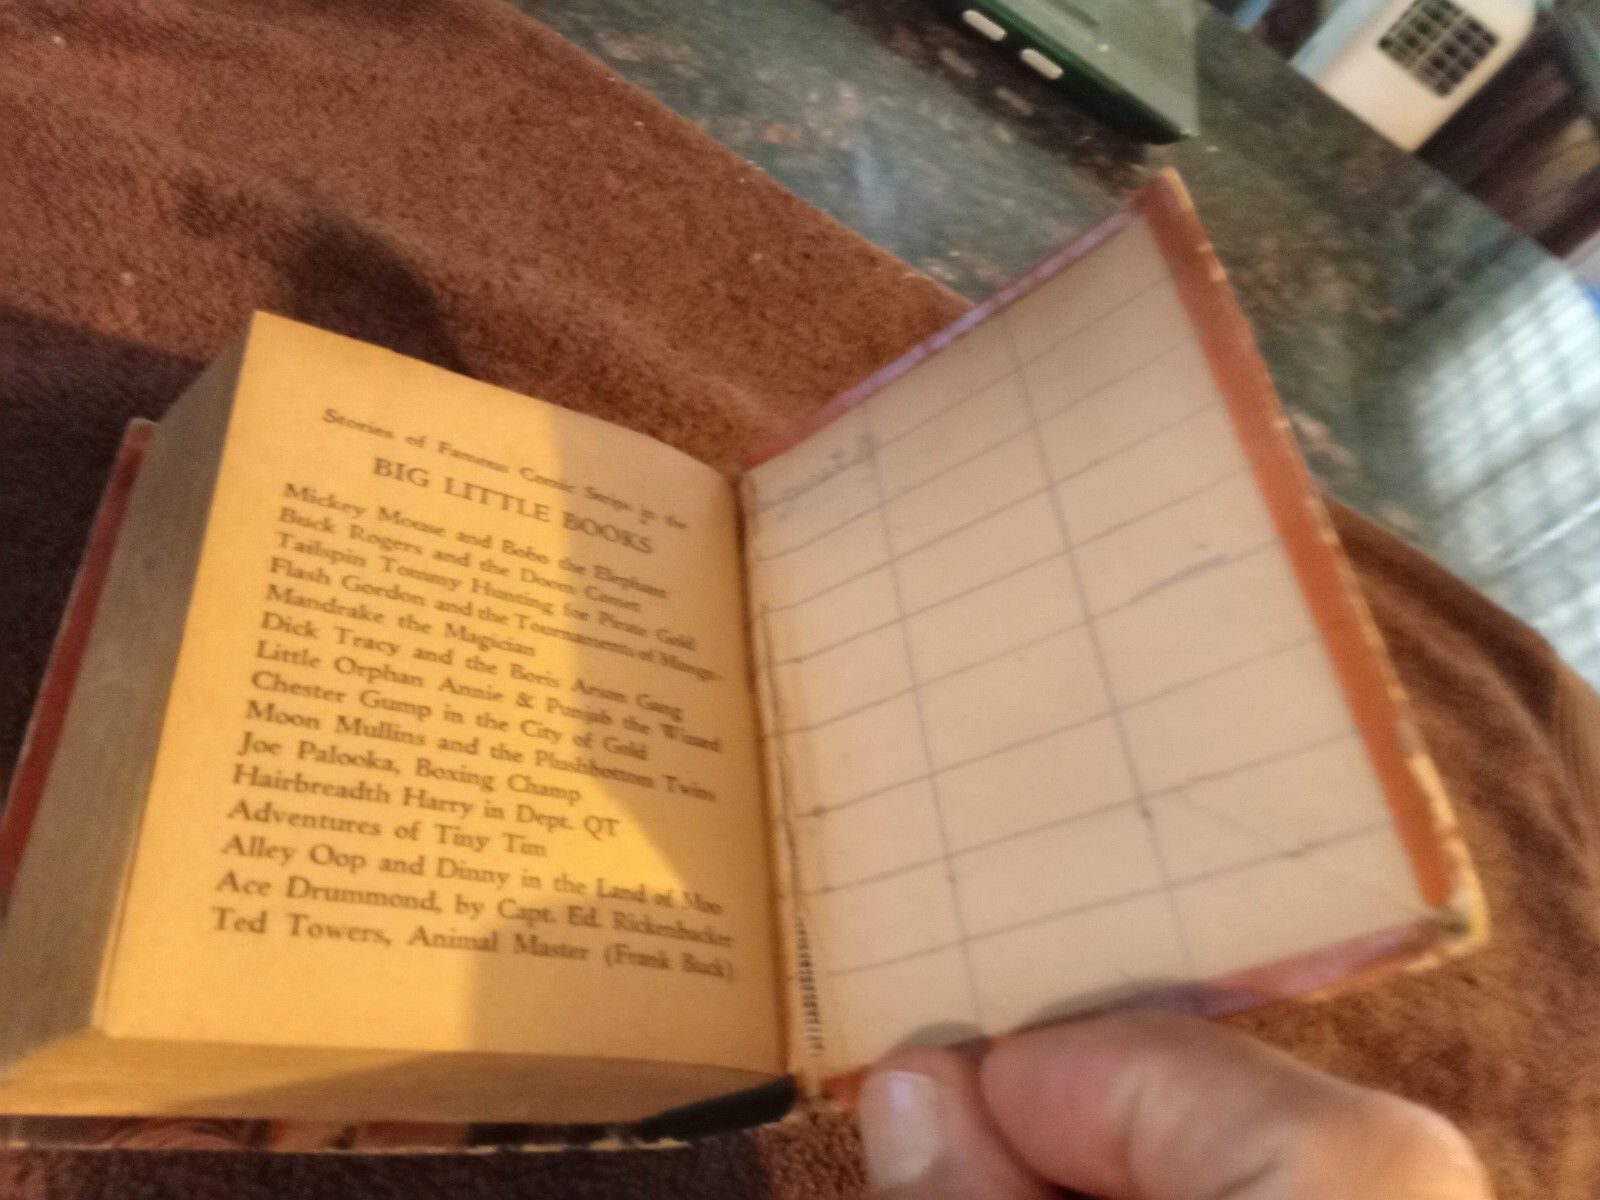 Stories of Famous Comic Strips in the
BIG LITTLE BOOKS
Mickey Mouse and Bobo the Elephant
Buck Rogers and the Doom Comet
Tailspin Tommy Hunting for Pirate Gold
Flash Gordon and the Tournaments of Mongo
Mandrake the Magician
Dick Tracy and the Boris Arson Gang
Little Orphan Annie & Punjab the Wizard
Chester Gump in the City of Gold
Moon Mullins and the Plushbottom Twins
Joe Palooka, Boxing Champ
Hairbreadth Harry in Dept. QT
Adventures of Tiny Tim
Alley Oop and Dinny in the Land of Moo
Ace Drummond, by Capt. Ed. Rickenbacker
Ted Towers, Animal Master (Frank Buck)